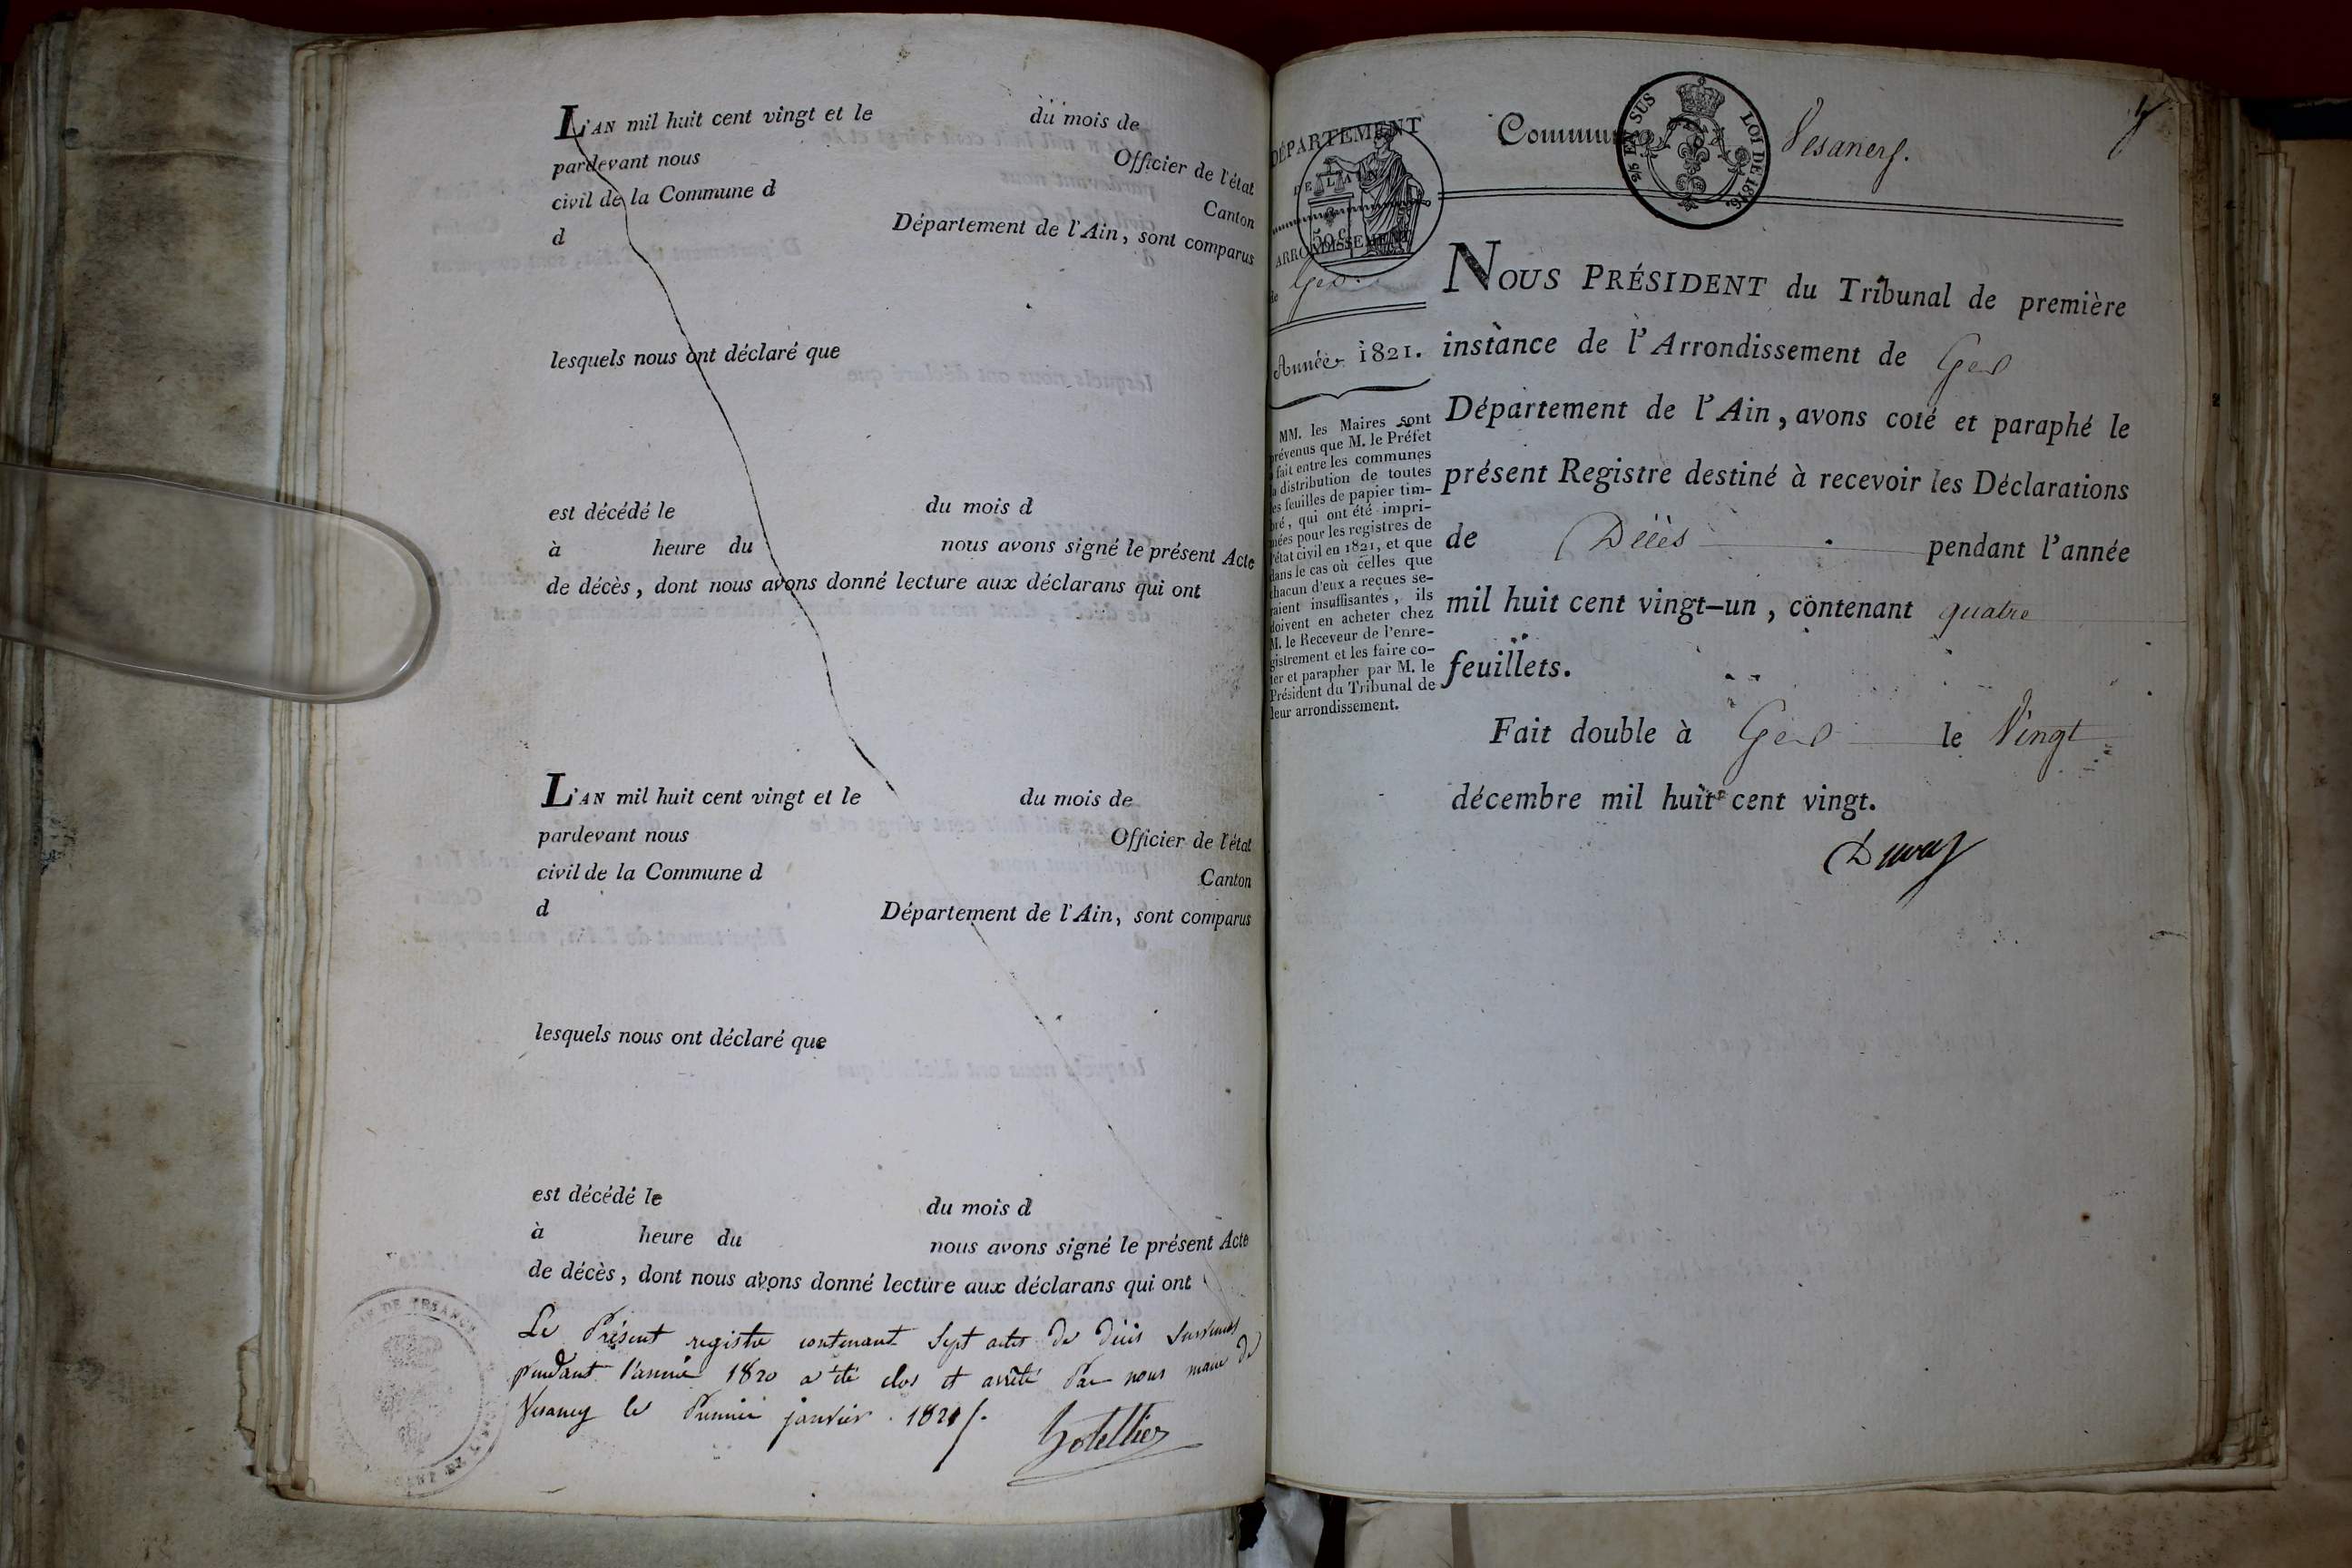 L'AN mil huit cent vingt et le du mois de
pardevant nous Officier de l'état
civil de la Commune d Canton
d Département de l'Ain, sont comparus
lesquels nous ont déclaré que
est décédé le du mois d
à heure du nous avons signé le présent Acte
de décès, dont nous avons donné lecture aux déclarans qui ont
L'AN mil huit cent vingt et le du mois de
pardevant nous Officier de l'état
civil de la Commune d Canton
d Département de l'Ain, sont comparus
lesquels nous ont déclaré que
est décédé le du mois d
à heure du nous avons signé le présent Acte
de décès, dont nous avons donné lecture aux déclarans qui ont
Le Présent registre contenant Sept actes de décès survenus
pendant l'année 1820 a été clos et arrêté Par nous maire de
Vesancy le Premier janvier 1821
hotellier
DÉPARTEMENT
DE L'AIN
50 c
ARRONDISSEMENT
de Gex
Année 1821.
MM. les Maires sont
prévenus que M. le Préfet
a fait entre les communes
la distribution de toutes
les feuilles de papier tim-
bré, qui ont été impri-
mées pour les registres de
l'état civil en 1821, et que
dans le cas où celles que
chacun d'eux a reçues se-
raient insuffisantes, ils
doivent en acheter chez
M. le Receveur de l'enre-
gistrement et les faire co-
ter et parapher par M. le
Président du Tribunal de
leur arrondissement.
Commune Vesancy.
EN SUS LOI DE 1816
NOUS PRÉSIDENT du Tribunal de première
instance de l'Arrondissement de Gex
Département de l'Ain, avons coté et paraphé le
présent Registre destiné à recevoir les Déclarations
de Décès pendant l'année
mil huit cent vingt-un, contenant quatre
feuillets.
Fait double à Gex le Vingt
décembre mil huit cent vingt.